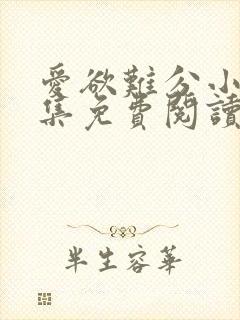 愛欲難分小
集免費閱讀
半生容華